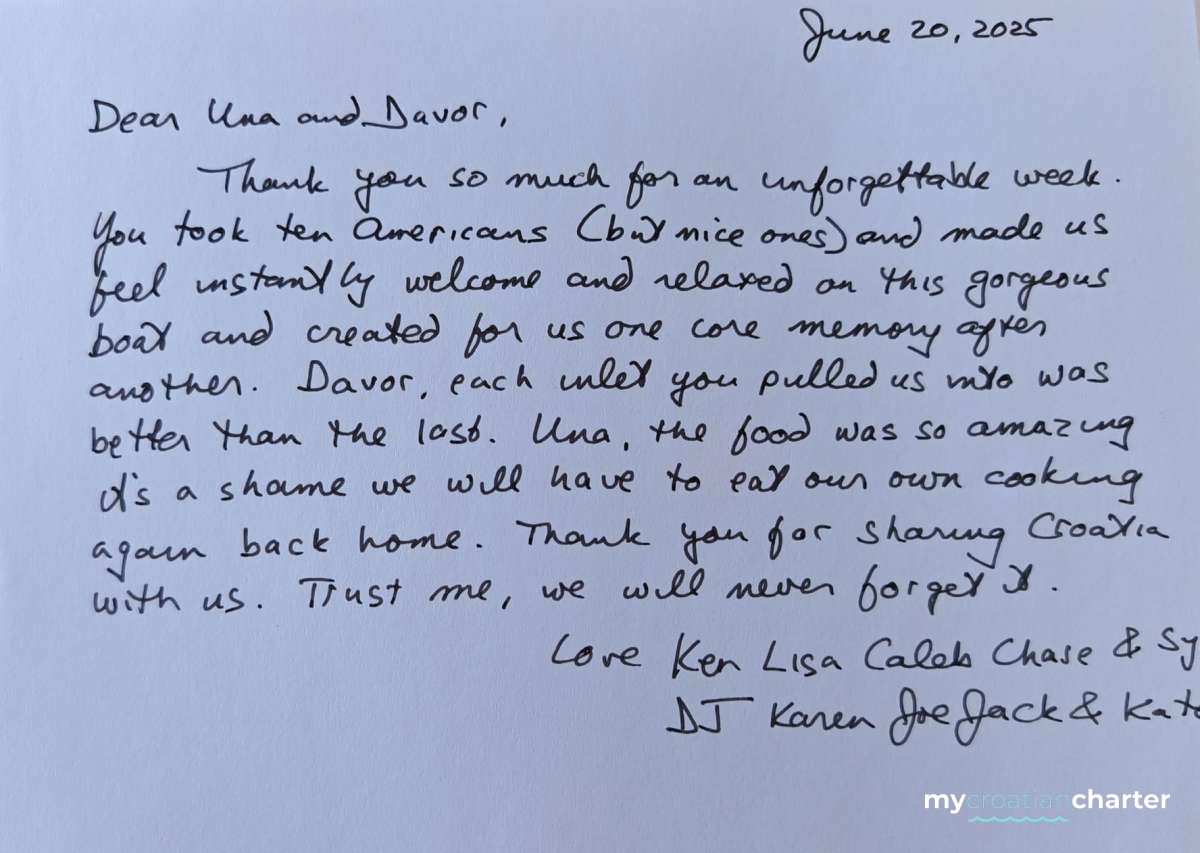 June 20, 2025
Dear Una and Davor,
Thank you so much for an unforgettable week.
You took ten Americans (but nice ones) and made us
feel instantly welcome and relaxed on this gorgeous
boat and created for us one core memory after
another. Davor, each inlet you pulled us into was
better than the last. Una, the food was so amazing
it's a shame we will have to eat our own cooking
again back home. Thank you for sharing Croatia
with us. Trust me, we will never forget it.
Love Ken Lisa Caleb Chase & Sy
DJ Karen Joe Jack & Kat
mycroatiancharter